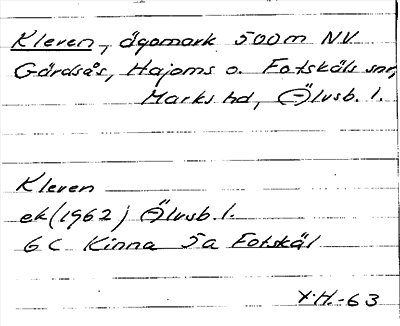 Kleven, ägomark 500m NV
Gärdsås, Hajoms o. Fotskäls snr,
Marks hd, Älvsb. l.
Kleven
ek (1962) Älvsb. l.
6C Kinna 5a Fotskäl
H.-63